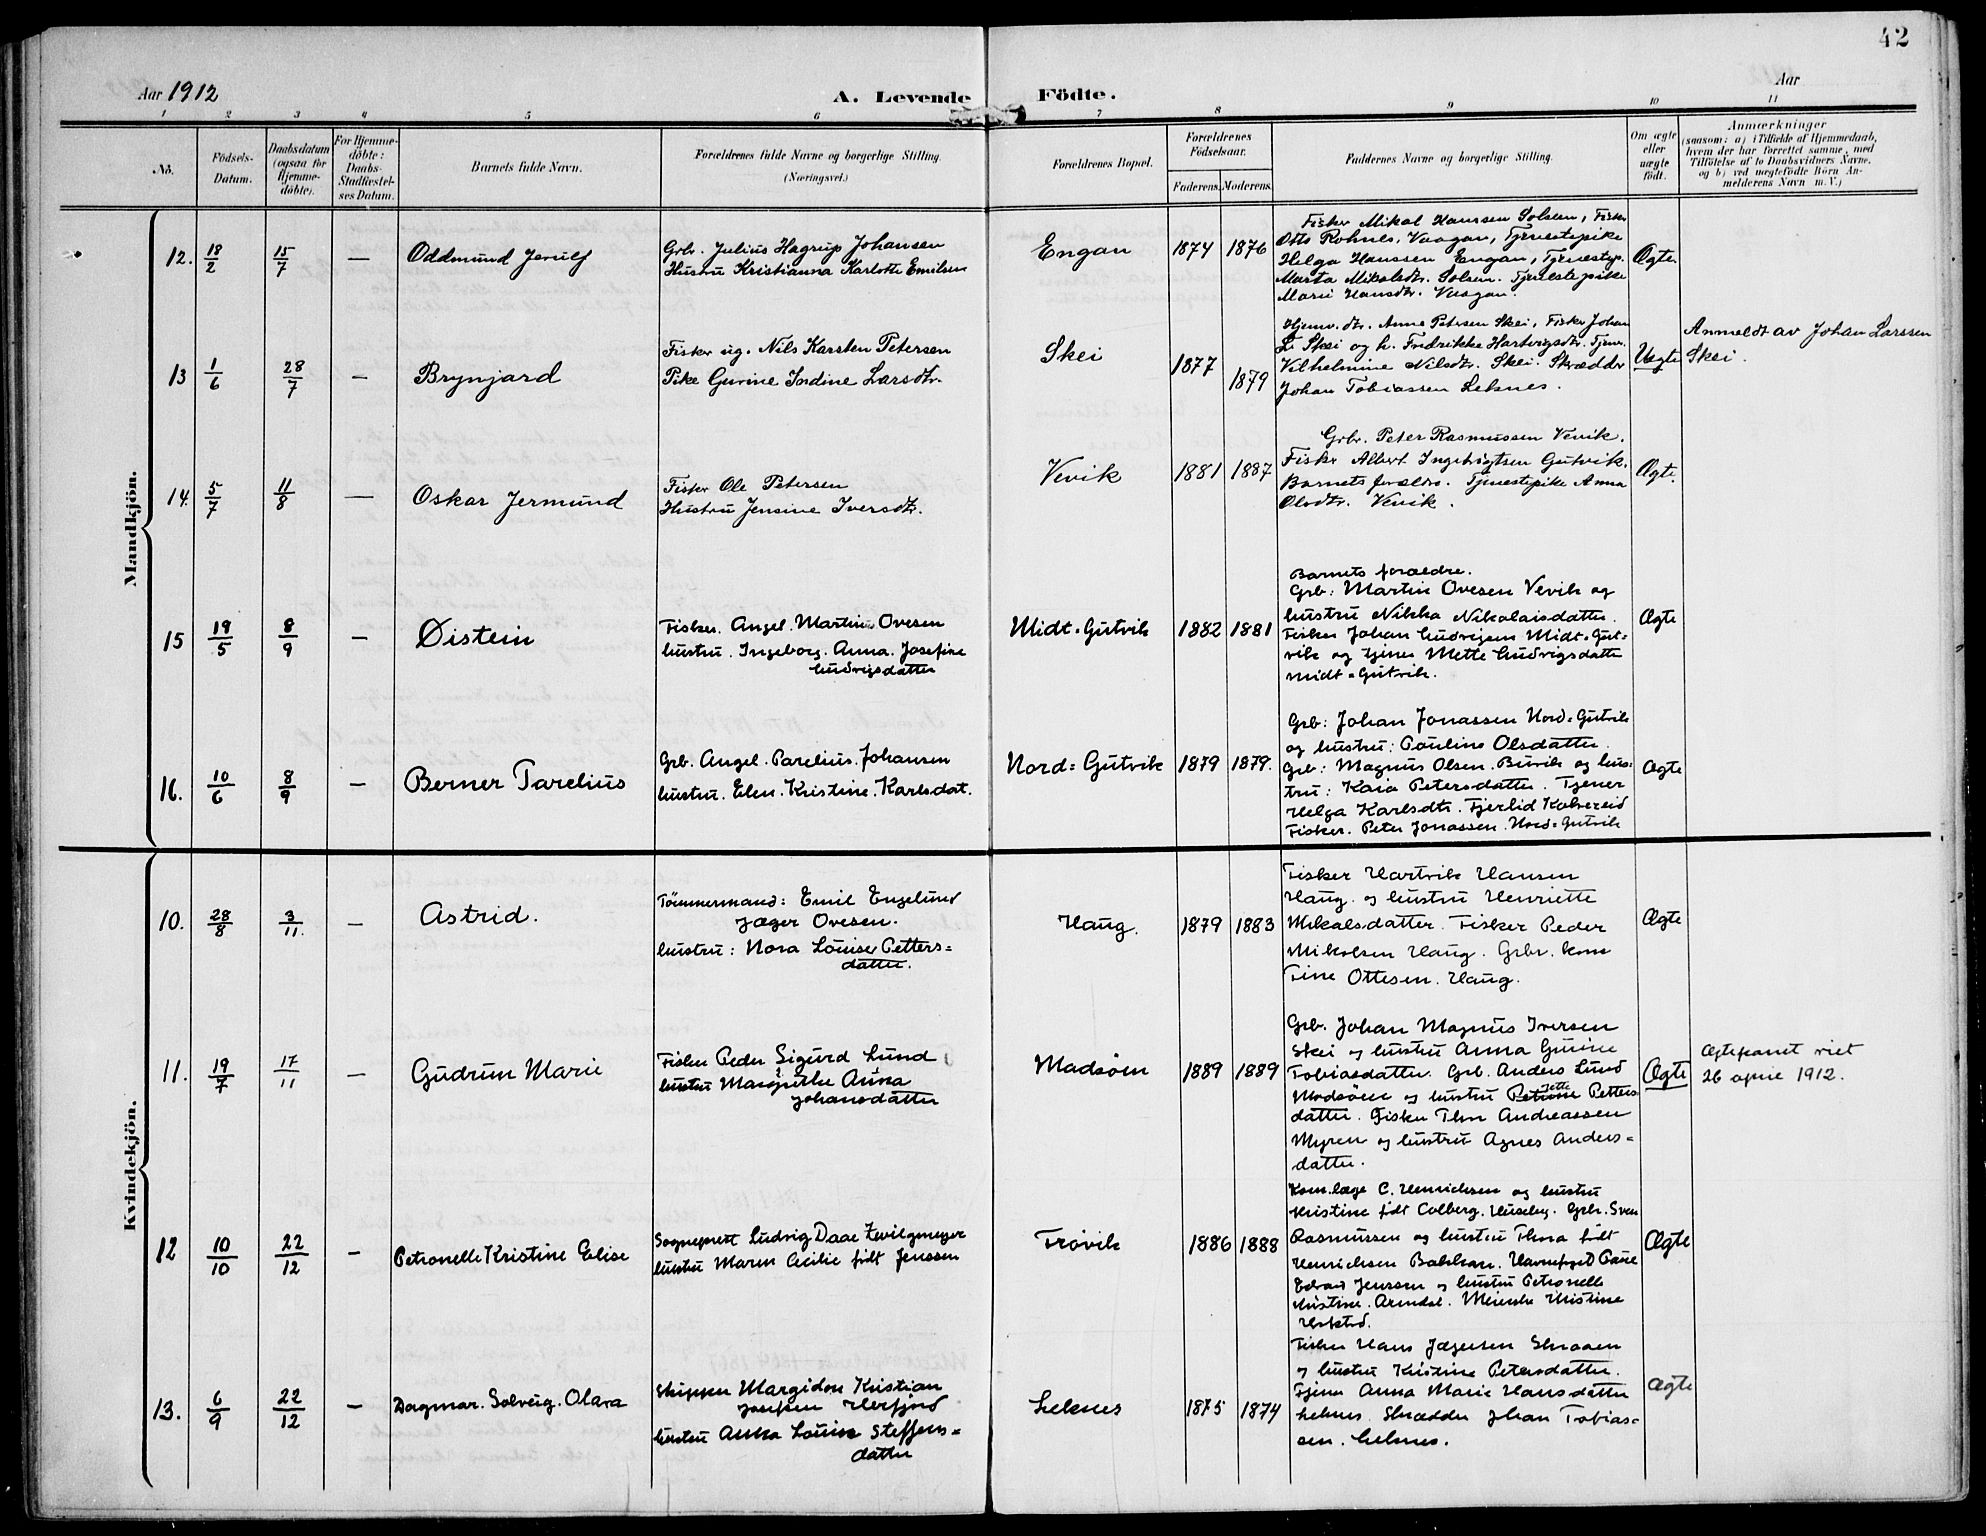 42
Aar 1912
A. Levende Födte.
Aar
1 2 3 4 5 6 7 8 9 10 11
No.
Födsels-
Datum.
Daabsdatum
(ogsaa for
Hjemme-
döbte).
For Hjemme-
döbte:
Daabs-
Stadfæstel-
ses Datum.
Barnets fulde Navn.
Forældrenes fulde Navne og borgerlige Stilling.
(Næringsvei.)
Forældrenes Bopæl.
Forældrenes
Födselsaar.
Faderens. Moderens.
Faddernes Navne og borgerlige Stilling.
Om ægte
eller
uægte
født.
Anmærkninger
(saasom: a) i Tilfælde af Hjemmedaab,
hvem der har forrettet samme, med
Tilföielse af to Daabsvidners Navne,
og b) ved uægtefödte Börn An-
melderens Navn m. V.)
Mandkjön.
12. 18/2 15/7 — Oddmund Jerulf
Grb. Julius Hagrup Johansen
Hustru Kristianna Karlotte Emilsen
Engan 1874 1876
Fisker Mikal Hanssen Solsem, Fisker
Otto Rohnes, Vaagan, Tjenestepike
Helga Hanssen Engan, Tjenestep.
Marta Mikalsdtr. Solsem. Tjenestepike
Marie Hansdtr. Vaagan.
Ægte.
13 1/6 28/7 — Brynjard
Fisker ug. Nils Karsten Petersen
Pike Gurine Indine Larsdtr.
Skei 1877 1879
Hjemv. dtr. Anne Petersen Skei, Fisker Johan
Li Skei og h. Fredrikke Hartvigsdtr. Tjen.
Vilhelmine Nilsdtr. Skei. Skrædder
Johan Tobiassen Leknes.
Uægte
Anmeldt av Johan Larssen
Skei.
14. 5/7 11/8 — Oskar Jermund
Fisker Ole Petersen
Hustru Jensine Iversdtr.
Vevik 1881 1887
Grbr. Peter Rasmussen Vevik.
Fisker Albert Ingebrigtsen Gutvik.
Barnets forældre. Tjenestepike Anna
Olsdtr. Vevik.
Ægte.
15 19/5 8/9 — Øistein
Fisker. Angel. Martinus Ovesen
hustru. Ingeborg. Anna. Josefine
Ludvigsdatter
Midt-Gutvik 1882 1881
Barnets forældre.
Grb: Martin Ovesen Vevik og
hustru Nikka Nikolaisdatter.
Fisker Johan Ludvigsen Midt-Gut-
vik og tjener Mette Ludvigsdatter
Midt-Gutvik.
Ægte
16. 10/6 8/9 — Berner Parelius
Grb. Angel. Parelius. Johansen
hustru. Elen. Kristine. Karlsdat.
Nord=Gutvik 1879 1879.
Grb: Johan Jonassen Nord-Gutvik
og hustru: Pauline Olsdatter.
Grb: Magnus Olsen. Buvik og hus-
tru: Kaia Petersdatter. Tjener
Helga Karlsdtr. Fjerlid Kolvereid
Fisker. Peter Jonassen. Nord-Gutvik
Ægte
Kvindekjön.
10. 28/8 3/11. — Astrid.
Tømmermand: Emil Engelund
Jæger Ovesen.
hustru: Nora Louise Petters=
datter.
Haug. 1879 1883
Fisker Hartvik Hansen
Haug. og hustru Henriette
Mikalsdatter. Fisker Peder
Mikalsen Haug. Grbr. kone
Tine Ottesen. Haug.
Ægte
11. 19/7 17/11 — Gudrun Marie
Fisker Peder Sigurd Lund
hustru Margrethe Anna
Johansdatter
Madsøen 1889 1889
Grb. Johan Magnus Iversen
Skei og hustru Anna Gurine
Tobiasdatter. Grb. Anders Lund
Madsøen og hustru Petters-
datter. Fisker Thor Andreassen
Myren og hustru Agnes Anders=
datter.
Ægte
Ægteparret viet
26 april 1912.
12 10/10 22/12 — Petronelle Kristine Elise
Sogneprest Ludvig Daae Zwilgmeyer
hustru Maren Cecilie født Jenssen
Frøvik 1886 1888
Kom.læge C. Henrichsen og hustru
Kristine født Colberg. Huseby. Grbr. Sven
Rasmussen og hustru Thea født
Henrichsen Bakkan. Havnefoged
Edvard Jenssen og hustru Petronelle
Kristine. Arendal. Kristine
Ægte
13. 6/9 22/12 — Dagmar. Solveig. Olara
Skipper Margidon Kristian
Josefsen Herfjord
hustru Anna Louise Steffens=
datter
Leknes 1875 1874
Fisker Hans Jægersen Skraaen
og hustru Kristine Petersdatter.
Tjener Anna Marie Hansdatter
Leknes. Skrædder Johan Tobias-
sen. Leknes.
Ægte